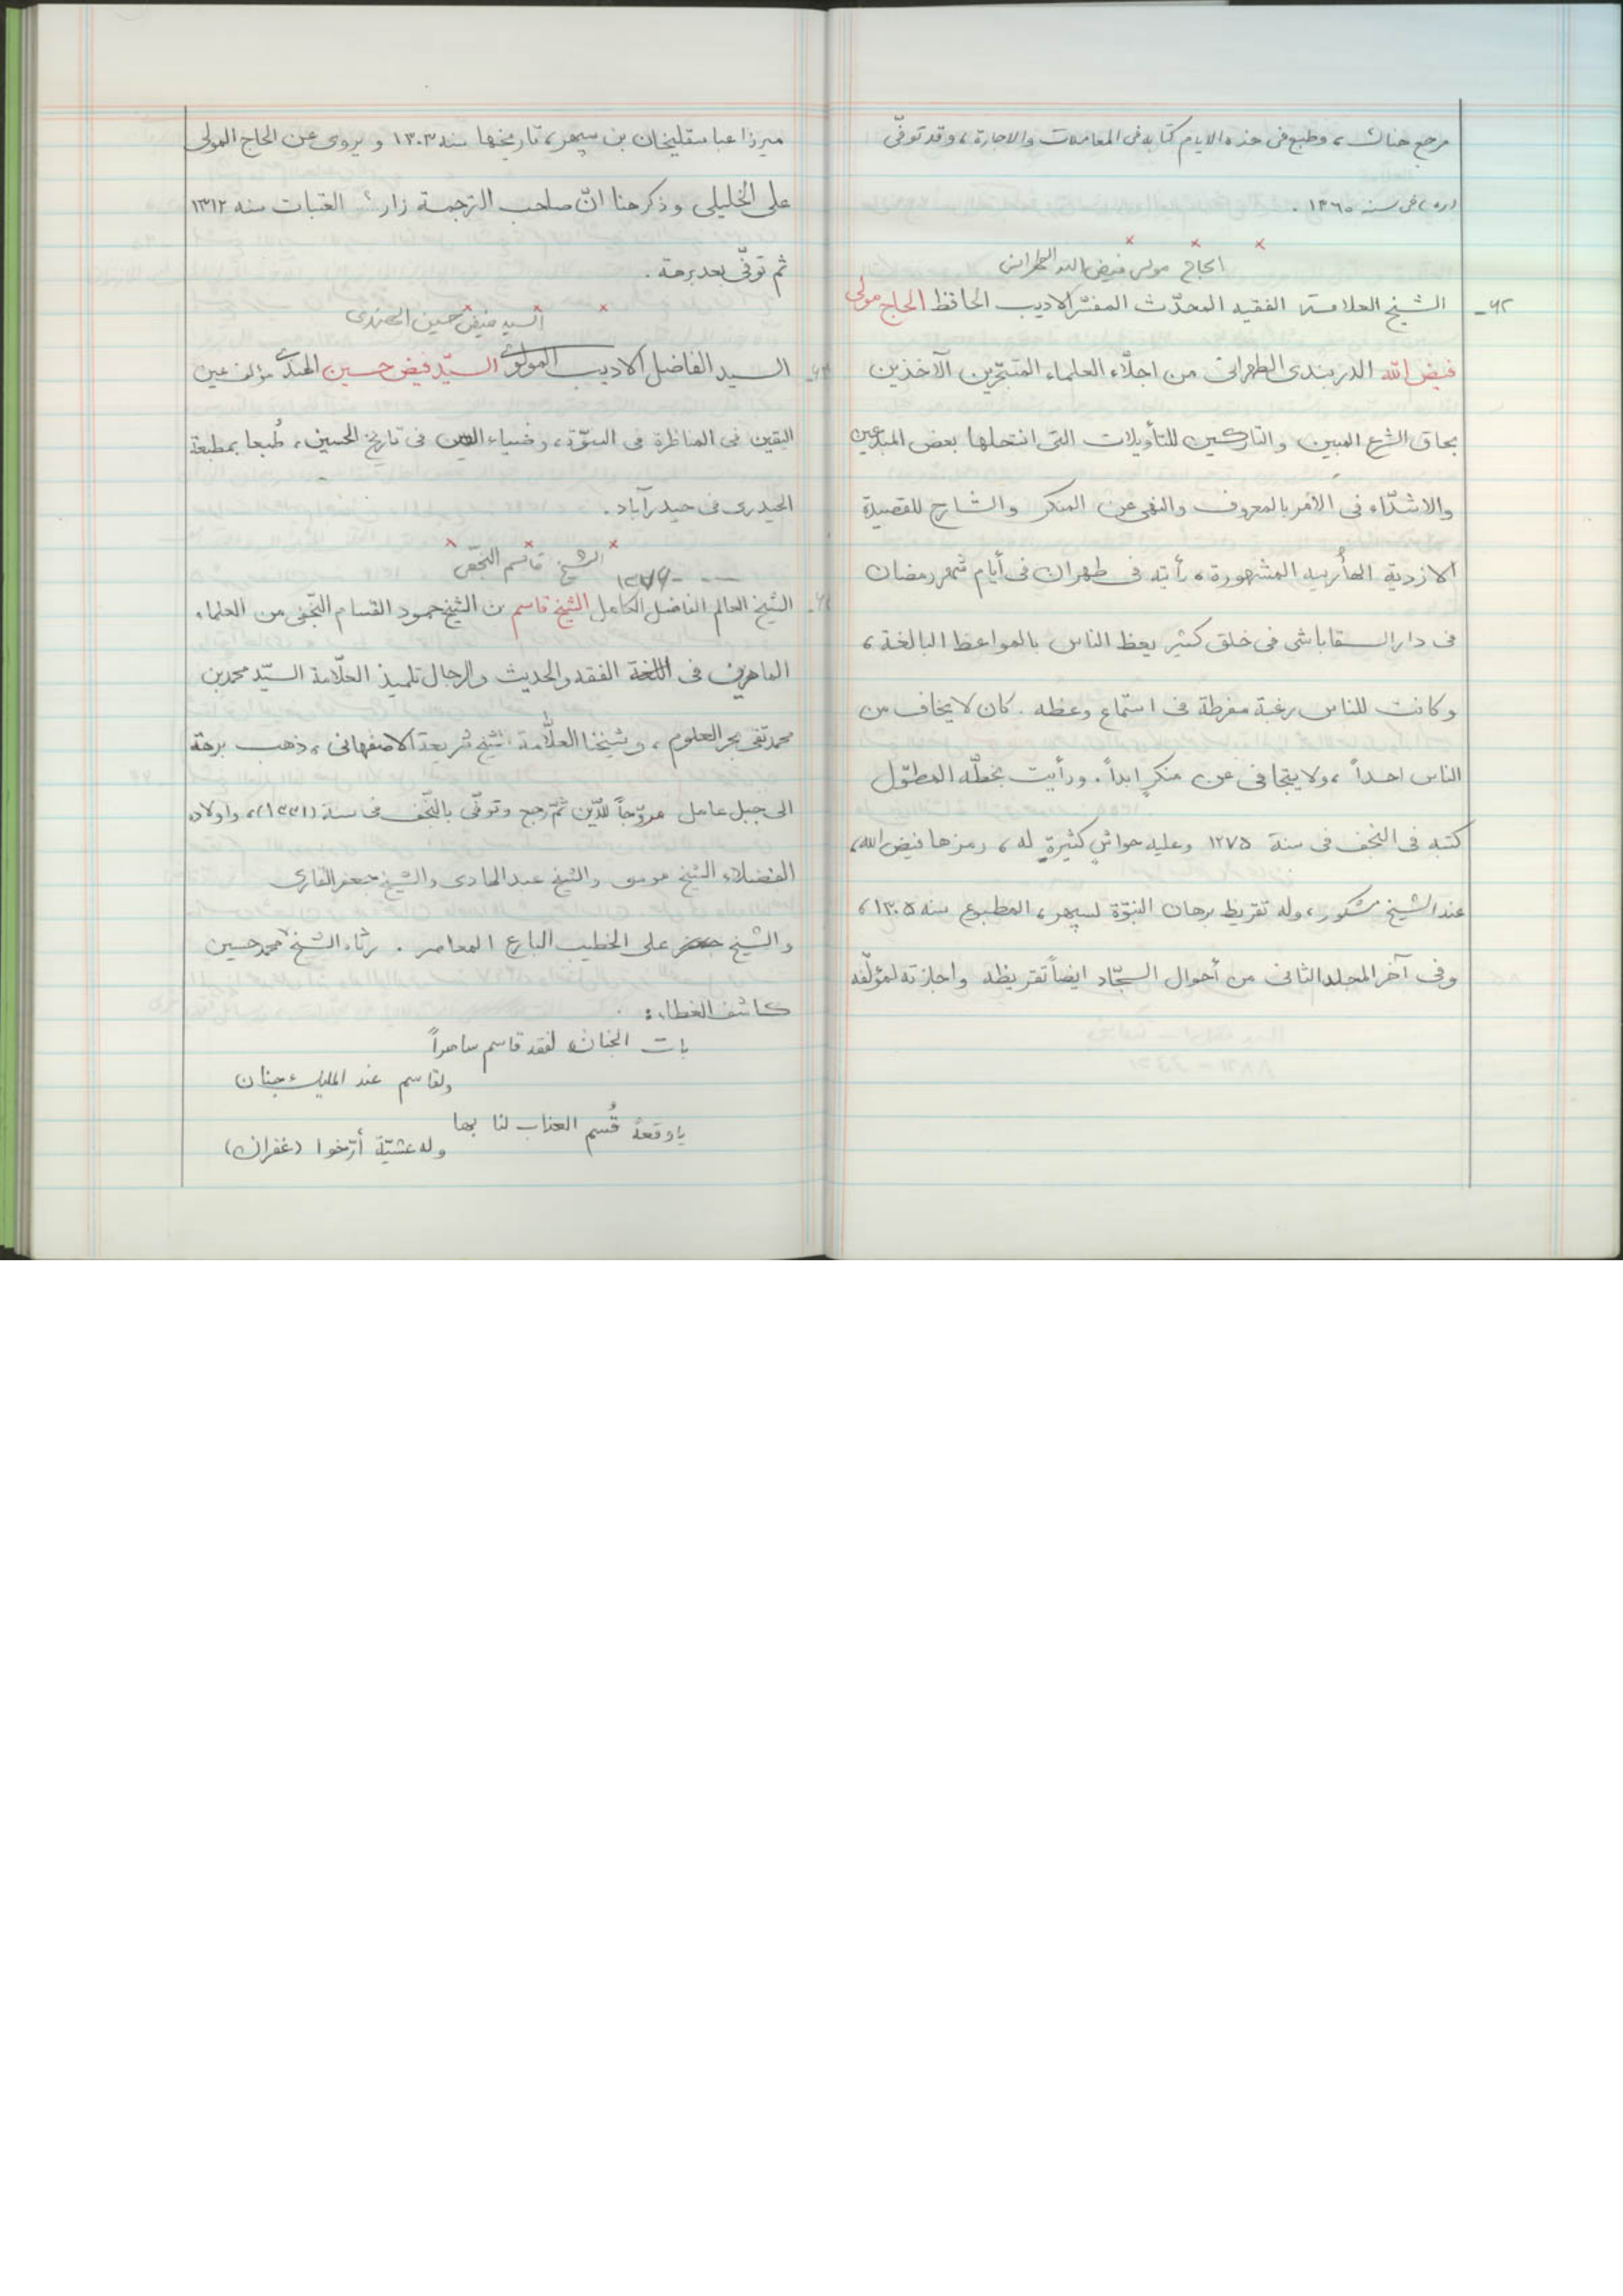 مرجع هناك ، وطبع فى هذه الايام كتابه فى المعاملات والاجارة ، وقد توفّى
(ره) فى سنه ١٣٦٥ .
الحاج مولى فيض الله الطهرانى
٦٢- الشيخ العلامة الفقيه المحدّث المفسّر الاديب الحافظ الحاج مولى
فيض الله الدربندى الطهرانى من اجلّاء العلماء المتبحّرين الآخذين
بحاق الشرع المبين والتاركين للتأويلات التى انتحلها بعض المبدعين
والاشدّاء فى الامر بالمعروف والنهى عن المنكر والشارح للقصيدة
الازدية الهائية المشهورة ، رأيته فى طهران فى أيام شهر رمضان
فى دار السقاباشى فى خلق كثير يعظ الناس بالمواعظ البالغة ،
وكانت للناس رغبة مفرطة فى استماع وعظه . كان لا يخاف من
الناس احداً ، ولا يتجافى عن منكرٍ ابداً . ورأيت بخطّه المطوّل
كتبه فى النجف فى سنة ١٢٧٥ وعليه حواشٍ كثيرةٍ له ، رمزها فيض الله ،
عند الشيخ مشكور ، وله تقريظ برهان النبوّة لسپهر ، المطبوع سنه ١٣٠٥ ،
وفى آخر المجلد الثانى من أحوال السجّاد ايضاً تقريظه واجازته لمؤلّفه
ميرزا عباسقليخان بن سپهر ، تاريخها سنه ١٣٠٣ و يروى عن الحاج المولى
على الخليلى وذكر هنا انّ صاحب الترجمة زار العتبات سنه ١٣١٢
ثم توفّى بعد برهة .
السيد فيض حسين الهندى
السيد الفاضل الاديب المولوى السيّد فيض حسين الهندى مؤلف عين
اليقين فى المناظرة فى النبوّة ، وضياء العين فى تاريخ الحسين ، طُبعا بمطبعة
الحيدرى فى حيدرآباد .
الشيخ قاسم النجفى
١٢٧٦ - ---
الشيخ العالم الفاضل الكامل الشيخ قاسم بن الشيخ حمود القسام النّجفى من العلماء
الماهرين فى اللغة الفقه والحديث والرجال تلميذ العلّامة السيّد محمد بن
محمد تقى بحر العلوم ، وشيخنا العلّامة شيخ شريعة الاصفهانى ، ذهب برهة
الى جبل عامل مروّجاً للدّين ثمّ رجع وتوفّى بالنّجف فى سنة (١٣٣١) ، واولاده
الفضلاء الشيخ موسى والشيخ عبد الهادى والشيخ جعفر القارى
والشيخ على الخطيب البارع المعاصر . رثاه الشيخ محمد حسين
كاشف الغطاء :
بات الجنان لفقد قاسم ساهراً
ولقاسم عند المليك جنان
يا وقعة قُسم العذاب لنا بها
وله عشيّة أرّخوا (غفران)